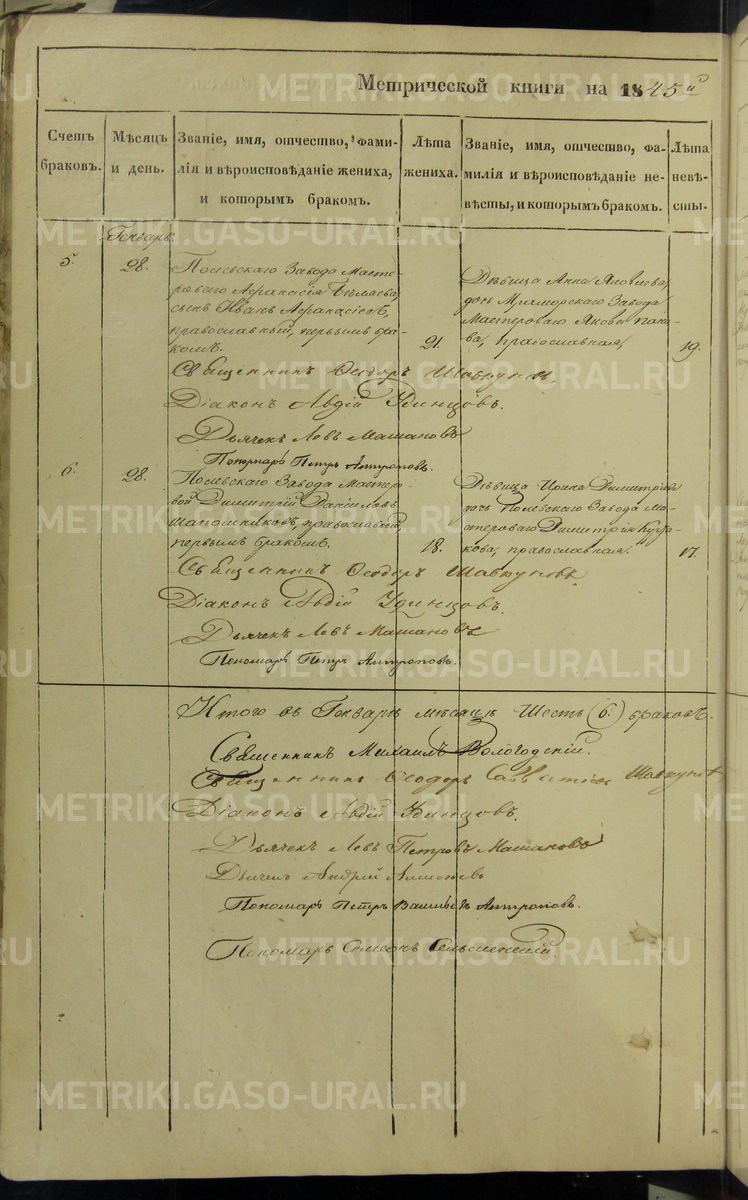 Метрической книги на 1845й
Счетъ браковъ.
Мѣсяцъ и день.
Званіе, имя, отчество, фами-
лія и вѣроисповѣданіе жениха,
и которымъ бракомъ.
Лѣта жениха.
Званіе, имя, отчество, фа-
милія и вѣроисповѣданіе не-
вѣсты, и которымъ бракомъ.
Лѣта невѣ-
сты.
Генварь.
5.
28.
Полевскаго Завода Масте-
роваго Афанасія Бѣляева
сынъ Иванъ Афанасіевъ,
православный, первымъ бра-
комъ.
21.
Дѣвица Анна Яковлева,
дочь Мраморскаго Завода
Мастероваго Якова
православная.
19.
Священникъ Ѳеодоръ Шавкуновъ.
Діаконъ Авдій Удинцовъ.
Дьячекъ Левъ Машановъ
Пономарь Петръ Антроповъ.
6.
28.
Полевскаго Завода Мастер-
вой Димитрій Даніиловъ
Шапошниковъ, православный,
первымъ бракомъ.
18.
Дѣвица Ирина Димитріева
дочь Полевскаго Завода Ма-
стероваго Димитрія
православная.
17.
Священникъ Ѳеодоръ Шавкуновъ.
Діаконъ Авдій Удинцовъ.
Дьячекъ Левъ Машановъ
Пономарь Петръ Антроповъ.
Итого въ Генварѣ мѣсяцѣ Шесть (6.) браковъ.
Священникъ Михаилъ Вологодскій.
Священникъ Ѳеодоръ Савватіевъ Шавкуновъ
Діаконъ Авдій Удинцовъ.
Дьячекъ Левъ Петровъ Машановъ
Дьячекъ Андрей
Пономарь Петръ Васильевъ Антроповъ.
Пономарь Симеонъ
METRIKI.GASO-URAL.RU